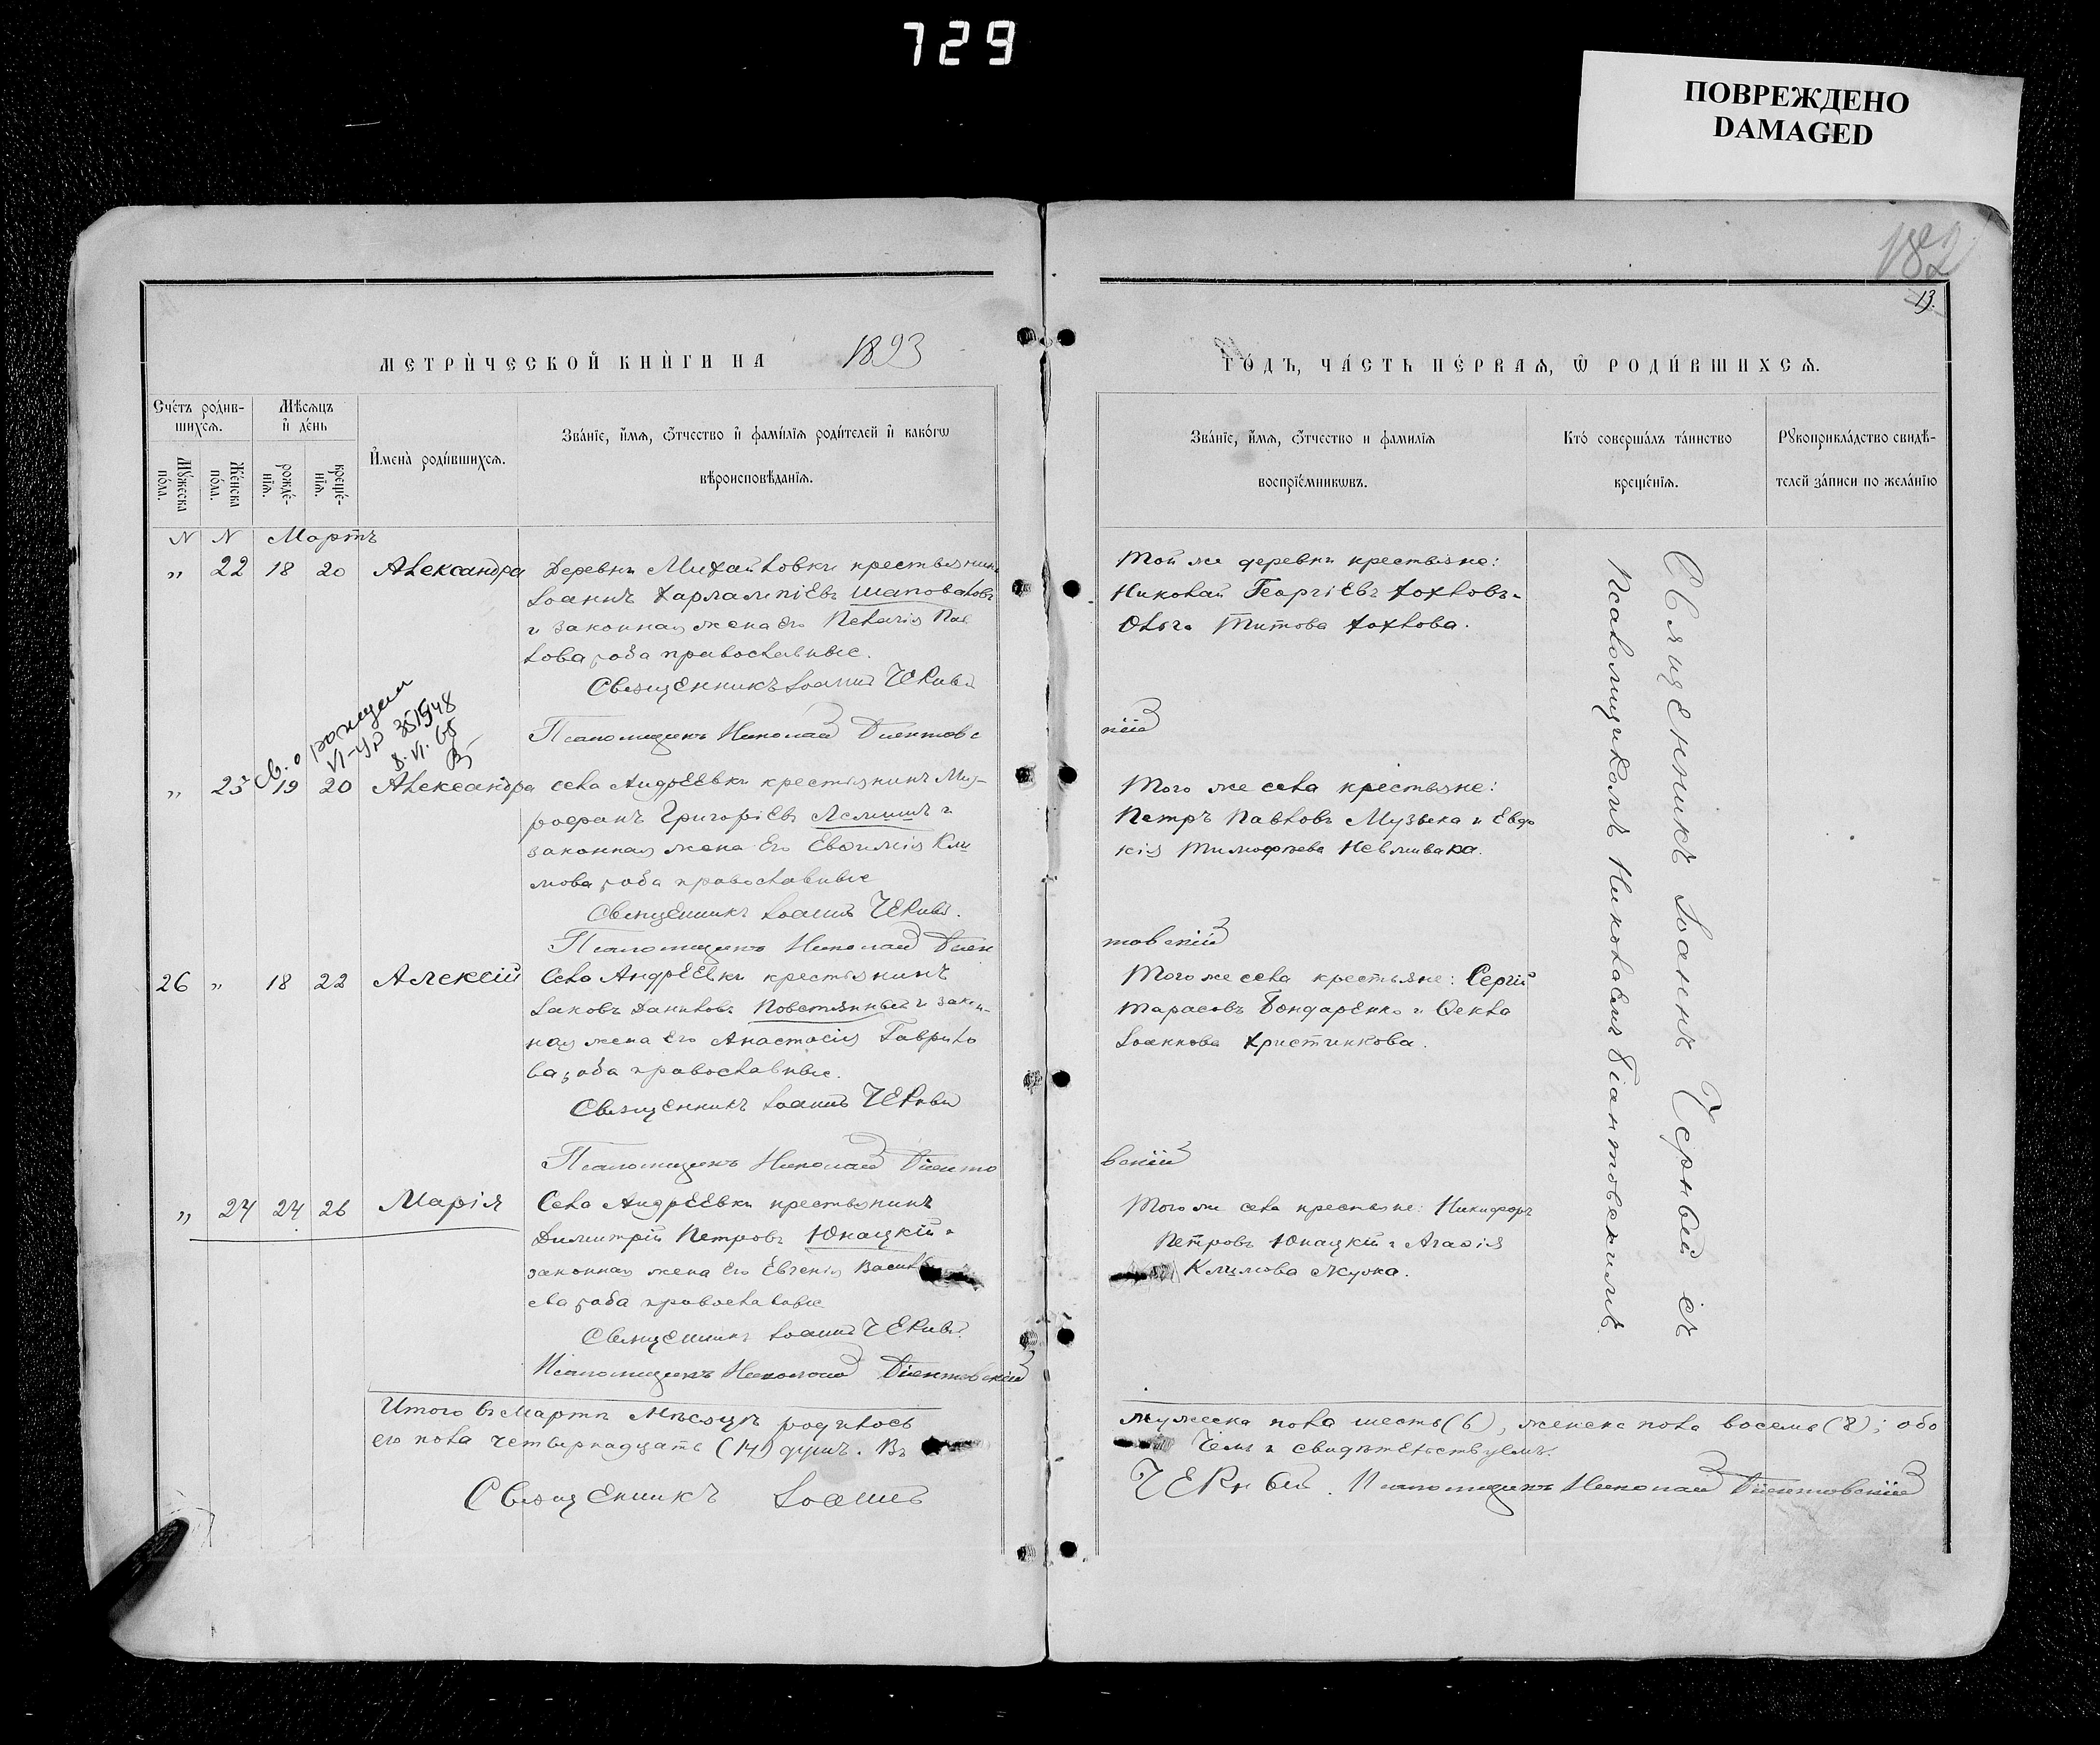 729
ПОВРЕЖДЕНО
DAMAGED
182
13.
МЕТРИ́ЧЕСКОЙ КНИ́ГИ НА 1893
ГО́ДЪ, ЧА́СТЬ ПЕ́РВАѦ, Ѡ РОДИ́ВШИХСѦ.
Сче́тъ роди́в-
шихсѧ.
Мѣ́сѧцъ
и҆ де́нь
Му́жеска
по́ла.
Же́нска
по́ла.
рожде́-
нїѧ.
креще́-
нїѧ.
И҆мена̀ роди́вшихсѧ.
Зва́нїе, и҆́мѧ, ѻ҆́тчество и҆ фами́лїѧ роди́телей и҆ како́гѡ
вѣроисповѣ́данїѧ.
Зва́нїе, и҆́мѧ, ѻ҆́тчество и фами́лїѧ
воспрїе́мникѡвъ.
Кто̀ соверша́лъ та́инство
креще́нїѧ.
Рꙋкоприкла́дство свидѣ́-
телей за́писи по жела́нїю
N N Мартъ
„ 22 18 20 Александра Деревни Михайловки крестьянинъ
Іоаннъ Харлампіевъ Шаповаловъ
и законная жена его Пелагія Пав
лова, оба православные.
Священникъ Іоаннъ Черный
Псаломщикъ Николай Біентовс
Той же деревни крестьяне:
Николай Георгіевъ Хохловъ и
Ольга Титова Хохлова.
кій
св. о рожден
VI-УР 351948
8.VI.65
„ 23 19 20 Александра села Андреевки крестьянинъ Мит-
рофанъ Григорьевъ и
законная жена его Евфимія Кли
мова, оба православные
Священникъ Іоаннъ Черный.
Псаломщикъ Николай Біен
Того же села крестьяне:
Петръ Павловъ Музыка и Евдо
кія Тимофеева Невлшвака.
товскій
26 „ 18 22 Алексій Села Андреевки крестьянинъ
Іаковъ Даниловъ Повстянный и закон-
ная жена его Анастасія Гаврило
ва, оба православные.
Священникъ Іоаннъ Черный
Псаломщикъ Николай Біенто
Того же села крестьяне: Сергій
Тарасовъ Бондаренко и Ѳекла
Іоаннова Христинкова.
вскій
„ 24 24 26 Марія Села Андреевки крестьянинъ
Димитрій Петровъ Юнацкій и
законная жена его Евгенія Василь
ева, оба православные
Священникъ Іоаннъ Черный.
Псаломщикъ Николай Біентовскій
Того же села крестьяне: Никифоръ
Петровъ Юнацкій и Агафія
Климова Жупка.
Священникъ Іоаннъ Черный съ
псаломщикомъ Николаемъ Біантовскимъ.
Итого въ Мартѣ мѣсяцѣ родилось
мужеска пола шесть (6), женска пола восемь (8); обо
его пола четырнадцать (14) душъ. Въ
чемъ и свидѣтельствуемъ.
Священникъ Іоаннъ
Черный. Псаломщикъ Николай Біентовскій